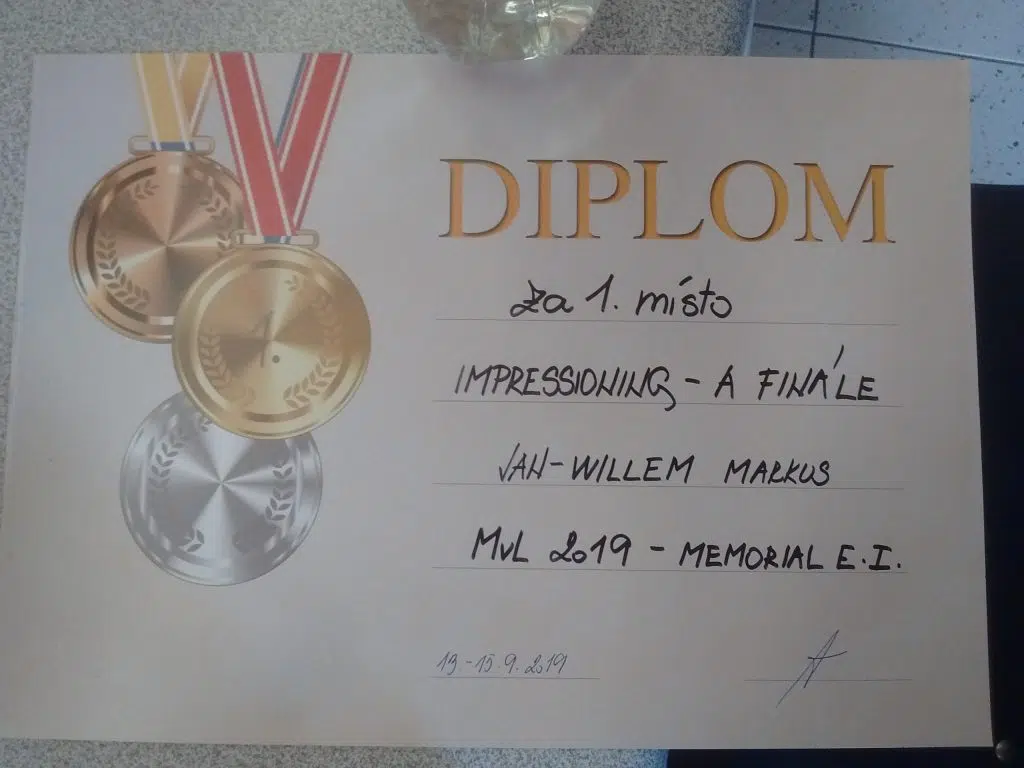 DIPLOM
za 1. místo
IMPRESSIONING - A FINÁLE
JAN-WILLEM MARKUS
MvL 2019 - MEMORIAL E.I.
13-15.9.2019